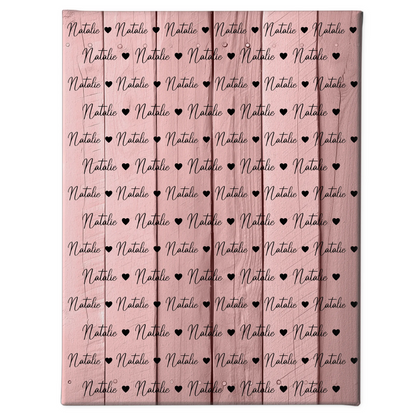 Natalie ♥ Natalie ♥ Natalie ♥ Natalie ♥ Natalie ♥ Natalie
Natalie ♥ Natalie ♥ Natalie ♥ Natalie ♥ Natalie ♥
Natalie ♥ Natalie ♥ Natalie ♥ Natalie ♥ Natalie ♥ Natalie
Natalie ♥ Natalie ♥ Natalie ♥ Natalie ♥ Natalie ♥
Natalie ♥ Natalie ♥ Natalie ♥ Natalie ♥ Natalie ♥ Natalie
Natalie ♥ Natalie ♥ Natalie ♥ Natalie ♥ Natalie ♥
Natalie ♥ Natalie ♥ Natalie ♥ Natalie ♥ Natalie ♥ Natalie
Natalie ♥ Natalie ♥ Natalie ♥ Natalie ♥ Natalie ♥
Natalie ♥ Natalie ♥ Natalie ♥ Natalie ♥ Natalie ♥ Natalie
Natalie ♥ Natalie ♥ Natalie ♥ Natalie ♥ Natalie ♥
Natalie ♥ Natalie ♥ Natalie ♥ Natalie ♥ Natalie ♥ Natalie
Natalie ♥ Natalie ♥ Natalie ♥ Natalie ♥ Natalie ♥
Natalie ♥ Natalie ♥ Natalie ♥ Natalie ♥ Natalie ♥ Natalie
Natalie ♥ Natalie ♥ Natalie ♥ Natalie ♥ Natalie ♥